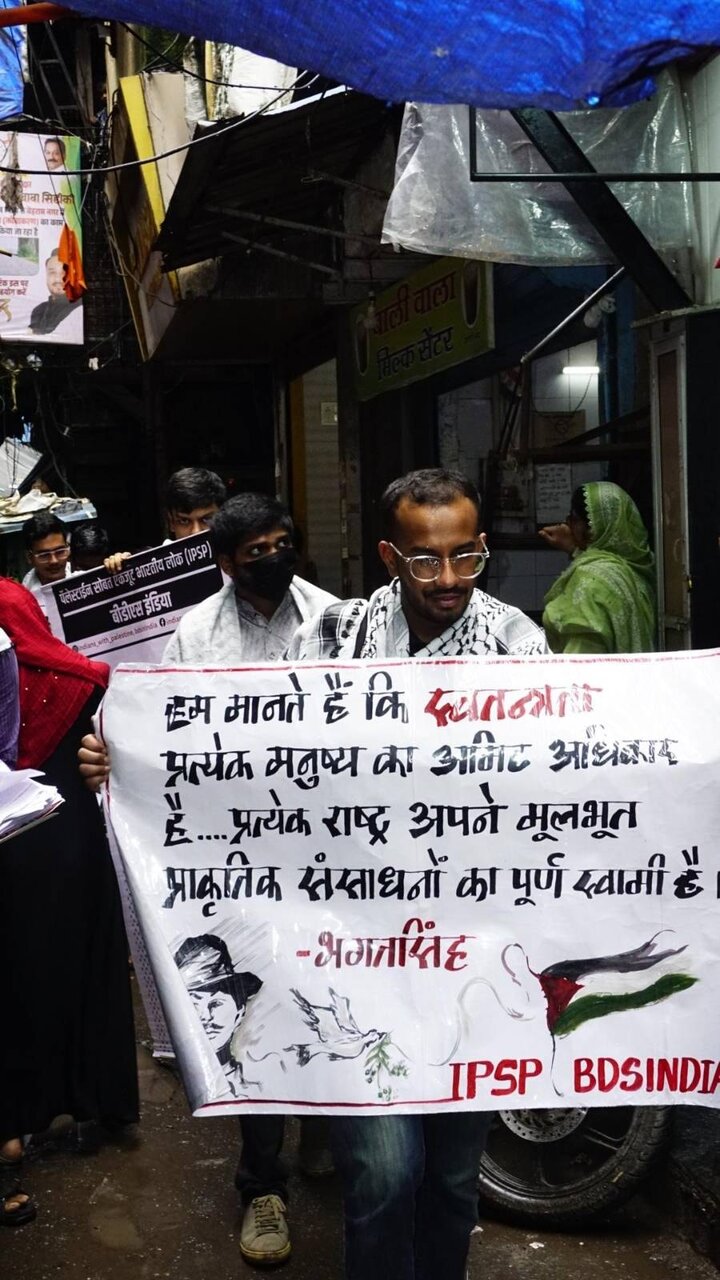 बाबा सिद्दीकी
किया जा रहा है
बाली वाला
मिल्क सेंटर
पॅलेस्टाईन सोबत एकजूट भारतीय लोक (IPSP)
बीडीएस इंडिया
हम मानते हैं कि स्वतन्त्रता
प्रत्येक मनुष्य का अमिट अधिकार
है....प्रत्येक राष्ट्र अपने मूलभूत
प्राकृतिक संसाधनों का पूर्ण स्वामी है।
-भगतसिंह
IPSP BDSINDIA